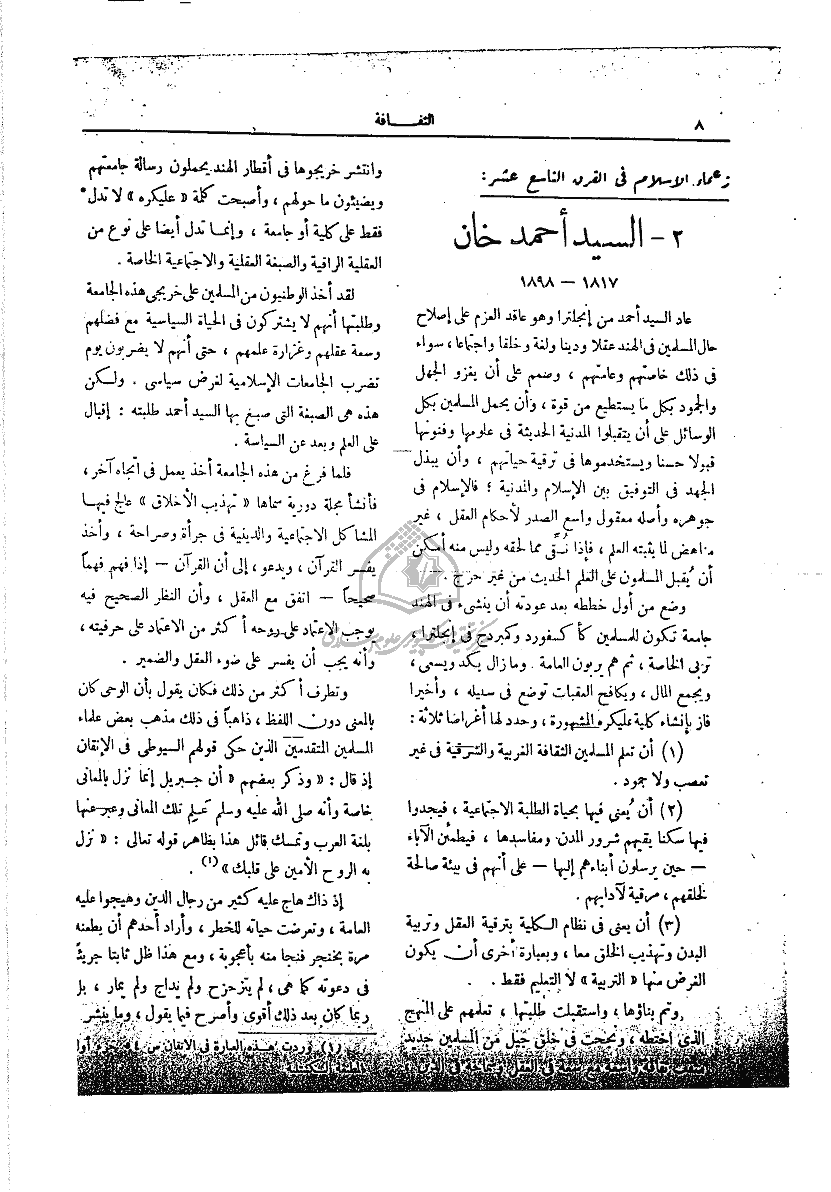 ٨
الثقـــافة
زعماء الإسلام فى القرن التاسع عشر :
٢ - السيد أحمد خان
١٨١٧ — ١٨٩٨
عاد السيد أحمد من إنجلترا وهو عاقد العزم على إصلاح
حال المسلمين فى الهند عقلا ودينا ولغة وخلقا واجتماعا ، سواء
فى ذلك خاصتهم وعامتهم ، وصمم على أن يغزو الجهل
والجمود بكل ما يستطيع من قوة ، وأن يحمل المسلمين بكل
الوسائل على أن يتقبلوا المدنية الحديثة فى علومها وفنونها
قبولا حسنا ويستخدموها فى ترقية حياتهم ، وأن يبذل
الجهد فى التوفيق بين الإسلام والمدنية ؛ فالإسلام فى
جوهره وأصله معقول واسع الصدر لأحكام العقل ، غير
مناهض لما يثبته العلم ، فإذا نُقّى مما لحقه وليس منه أمكن
أن يُقبل المسلمون على العلم الحديث من غير حرج .
وضع من أول خططه بعد عودته أن ينشىء فى الهند
جامعة تكون للمسلمين كأكسفورد وكمبردج فى إنجلترا ،
تربى الخاصة ، ثم هم يربون العامة . وما زال يكد ويسعى ،
ويجمع المال ، ويكافح العقبات توضع فى سبيله ، وأخيرا
فاز بإنشاء كلية عليكره المشهورة ، وحدد لها أغراضا ثلاثة :
(١) أن تعلم المسلمين الثقافة الغربية والشرقية فى غير
تعصب ولا جمود .
(٢) أن يُعنى فيها بحياة الطلبة الاجتماعية ، فيجدوا
فيها سكنا يقيهم شرور المدن ومفاسدها ، فيطمئن الآباء
— حين يرسلون أبناءهم إليها — على أنهم فى بيئة صالحة
لخلقهم ، مرقية لآدابهم .
(٣) أن يعنى فى نظام الكلية بترقية العقل وتربية
البدن وتهذيب الخلق معا ، وبعبارة أخرى أن يكون
الغرض منها « التربية » لا التعليم فقط .
وتم بناؤها ، واستقبلت طلبتها ، تعلمهم على المنهج
الذى اختطه ، ونجحت فى خلق جيل من المسلمين جديد
وانتشر خريجوها فى أقطار الهند يحملون رسالة جامعتهم
ويضيئون ما حولهم ، وأصبحت كلمة « عليكره » لا تدل
فقط على كلية أو جامعة ، وإنما تدل أيضا على نوع من
العقلية الراقية والصبغة العقلية والاجتماعية الخاصة .
لقد أخذ الوطنيون من المسلمين على خريجى هذه الجامعة
وطلبتها أنهم لا يشتركون فى الحياة السياسية مع فضلهم
وسعة عقلهم وغزارة علمهم ، حتى أنهم لا يضربون يوم
تضرب الجامعات الإسلامية لغرض سياسى . ولكن
هذه هى الصبغة التى صبغ بها السيد أحمد طلبته : إقبال
على العلم وبعد عن السياسة .
فلما فرغ من هذه الجامعة أخذ يعمل فى اتجاه آخر ،
فأنشأ مجلة دورية سماها « تهذيب الأخلاق » عالج فيها
المشاكل الاجتماعية والدينية فى جرأة وصراحة ، وأخذ
يفسر القرآن ، ويدعو ، إلى أن القرآن — إذا فهم فهماً
صحيحاً — اتفق مع العقل ، وأن النظر الصحيح فيه
يوجب الاعتماد على روحه أكثر من الاعتماد على حرفيته ،
وأنه يجب أن يفسر على ضوء العقل والضمير .
وتطرف أكثر من ذلك فكان يقول بأن الوحى كان
بالمعنى دون اللفظ ، ذاهباً فى ذلك مذهب بعض علماء
المسلمين المتقدمين الذين حكى قولهم السيوطى فى الإتقان
إذ قال : « وذكر بعضهم « أن جبريل إنما نزل بالمعانى
خاصة وأنه صلى الله عليه وسلم عَلِم تلك المعانى وعبر عنها
بلغة العرب وتمسك قائل هذا بظاهر قوله تعالى : « نزل
به الروح الأمين على قلبك » (١) .
إذ ذاك هاج عليه كثير من رجال الدين وهيجوا عليه
العامة ، وتعرضت حياته للخطر ، وأراد أحدهم أن يطعنه
مرة بخنجر فنجا منه بأعجوبة ، ومع هذا ظل ثابتا جريئاً
فى دعوته كما هى ، لم يتزحزح ولم يداج ولم يمار ، بل
ربما كان بعد ذلك أقوى وأصرح فيما يقول ، وما ينشر
(١) وردت هذه العبارة فى الاتقان ص